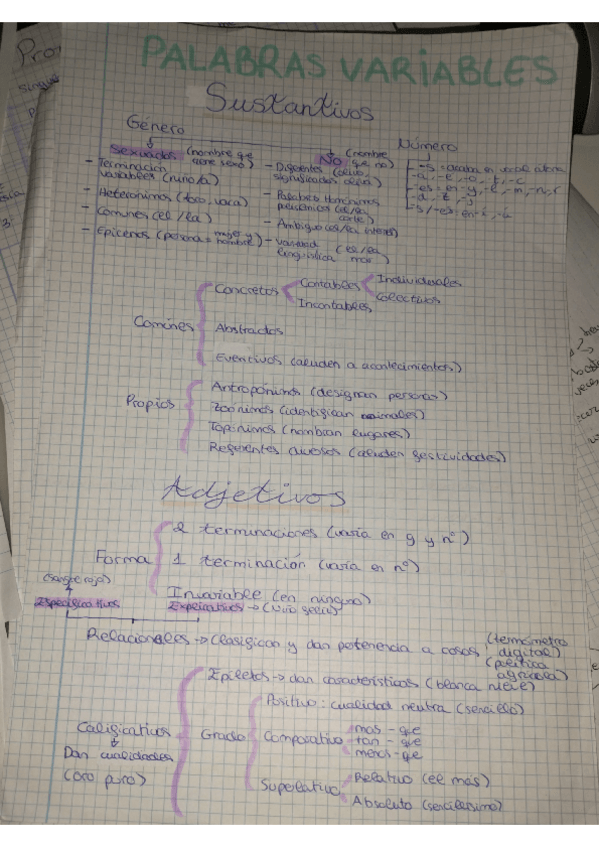 PALABRAS VARIABLES
Sustantivos
Género
Número
Sexuados (nombre que tiene sexo)
- Terminación variables (niño/a)
- Heterónimos (toro, vaca)
- Comunes (el/la)
- Epicenos (persona = mujer y hombre)
No (nombre que no)
- Diferentes significados
- Palabras Homónimas
- Ambiguos (el/la)
- Variedad lingüística (el/la mar)
-s = acaban en vocal átona
-a, -e, -o
-es = en -y, -l, -m, -n, -r
-s/-es: en -í, -ú
Comunes
Concretos
Contables
Individuales
Colectivos
Incontables
Abstractos
Eventivos (aluden a acontecimientos)
Propios
Antropónimos (designan personas)
Zoónimos (identifican animales)
Topónimos (nombran lugares)
Referentes diversos (aluden festividades)
Adjetivos
Forma
2 terminaciones (varía en g y nº)
1 terminación (varía en nº)
Invariable (en ninguno)
(sangre roja)
Especificativos
Explicativos →
Relacionales → Clasifican y dan potenencia a cosas (termómetro digital)
(política agrícola)
Calificativos
Dan cualidades
(oro puro)
Epítetos → dan características (blanca nieve)
Grado
Positivo: cualidad neutra (sencillo)
Comparativo
más - que
tan - que
menos - que
Superlativo
Relativo (el más)
Absoluto (sencillísimo)